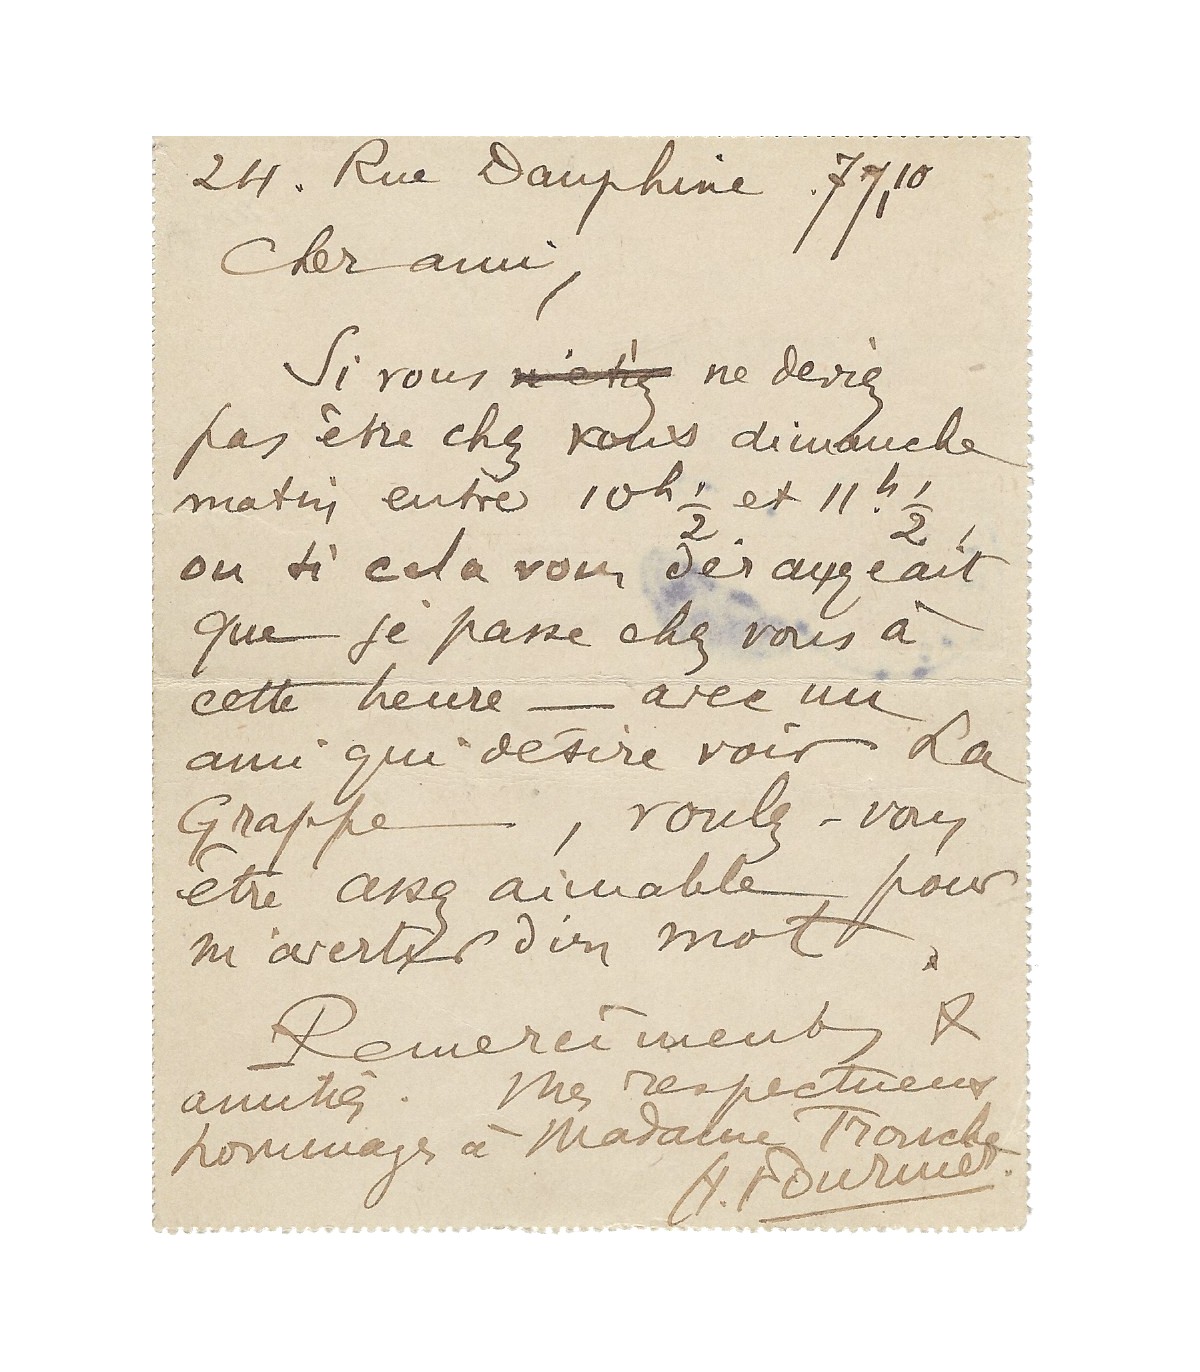 24. Rue Dauphine 7/7/10
Cher ami,
Si vous n'étiez ne deviez
pas être chez vous dimanche
matin entre 10h 1/2 et 11h 1/2,
ou si cela vous dérangeait
que je passe chez vous à
cette heure — avec un
ami qui désire voir La
Grappe, voulez-vous
être assez aimable pour
m'avertir d'un mot.
Remerciments &
amitiés. Mes respectueux
hommages à Madame Tronche
H. Fournier.